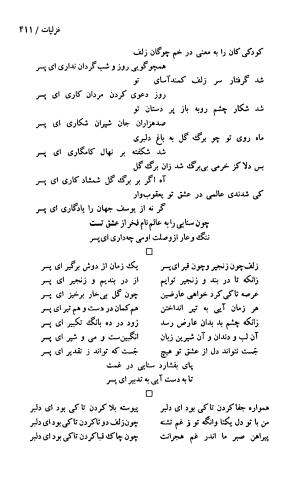 غزلیات / ۴۱۱
کودکی کان را به معنی در خم چوگان زلف
همچو گویی روز و شب گردان نداری ای پسر
شد گرفتار سر زلف کمندآسای تو
روز دعوی کردن مردان کاری ای پسر
شد شکار چشم روبه باز پر دستان تو
صدهزاران جان شیران شکاری ای پسر
ماه روی تو چو برگ گل به باغ دلبری
شد شکفته بر نهال کامگاری ای پسر
بس دلا کز خرمی بی‌برگ شد زان برگ گل
آه اگر بر برگ گل شمشاد کاری ای پسر
کی شدندی عالمی در عشق تو یعقوب‌وار
گر نه از یوسف جهان را یادگاری ای پسر
چون سنایی را به عالم نام فخر از عشق تست
ننگ و عار از وصلت او می چه داری ای پسر
زلف چون زنجیر و چون قیر ای پسر یک زمان از دوش برگیر ای پسر
زانکه تا در بند و زنجیر توایم از در بندیم و زنجیر ای پسر
عرصه تا کی کرد خواهی عارضین چون گل بی‌خار برخیز ای پسر
هر زمان آیی به تیر انداختن هم کمان در دست و هم تیر ای پسر
زانکه چشم بد بدان عارض رسد زود در ده بانگ تکبیر ای پسر
آن لب و دندان و آن شیرین زبان انگبین‌ست و می و شیر ای پسر
جست نتواند دل از عشق تو هیچ جست که تواند ز تقدیر ای پسر
پای بفشارد سنایی در غمت
تا به دست آیی به تدبیر ای پسر
همواره جفا کردن تا کی بود ای دلبر پیوسته بلا کردن تا کی بود ای دلبر
من با تو دل یکتا وانگه تو ز غم تشنه چون زلف دو تا کردن تا کی بود ای دلبر
پیراهن صبر ما اندر غم هجرانت چون چاک قبا کردن تا کی بود ای دلبر